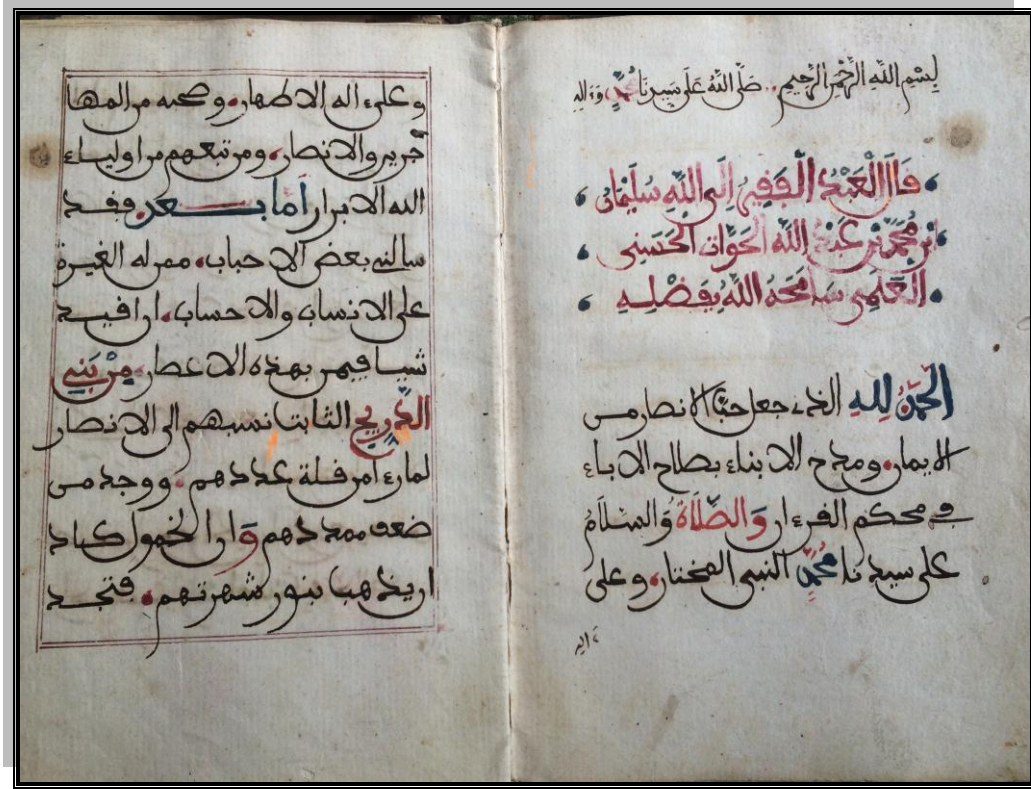 بِسْمِ اللَّهِ الرَّحْمَنِ الرَّحِيمِ. صَلَّى اللَّهُ عَلَى سَيِّدِنَا مُحَمَّدٍ وَءَالِهِ
قَالَ الْعَبْدُ الْفَقِيرُ إِلَى اللَّهِ سُلَيْمَانُ
ابْنُ مُحَمَّدِ بْنِ عَبْدِ اللَّهِ الْحَوَّاتُ الْحَسَنِي
الْعَلَمِي سَامَحَهُ اللَّهُ بِفَضْلِهِ
الْحَمْدُ لِلهِ الذي جعل حبّ الانصار من
الايمان، ومدح الابناء بصلاح الاباء
في محكم القرءان وَالصَّلَاةُ وَالسَّلَامُ
على سيدنا مُحَمَّدٍ النبي المختار، وعلى
ءاله
وعلى ءاله الاطهار، وصحبه من المها
جرين والانصار، ومن تبعهم من اولياء
الله الابرار أما بعد، فقد
سالني بعض الاحباب، ممن له الغيرة
على الانساب والاحساب، ان اقيد
شيئا فيمن بهذه الاعصار، مِنْ بَنِي
الدّريج الثابت نسبهم الى الانصار
لما رءا من قلة عددهم، ووجد من
ضعف مددهم وَان الخمول كاد
ان يذهب بنور شهرتهم، فتجد